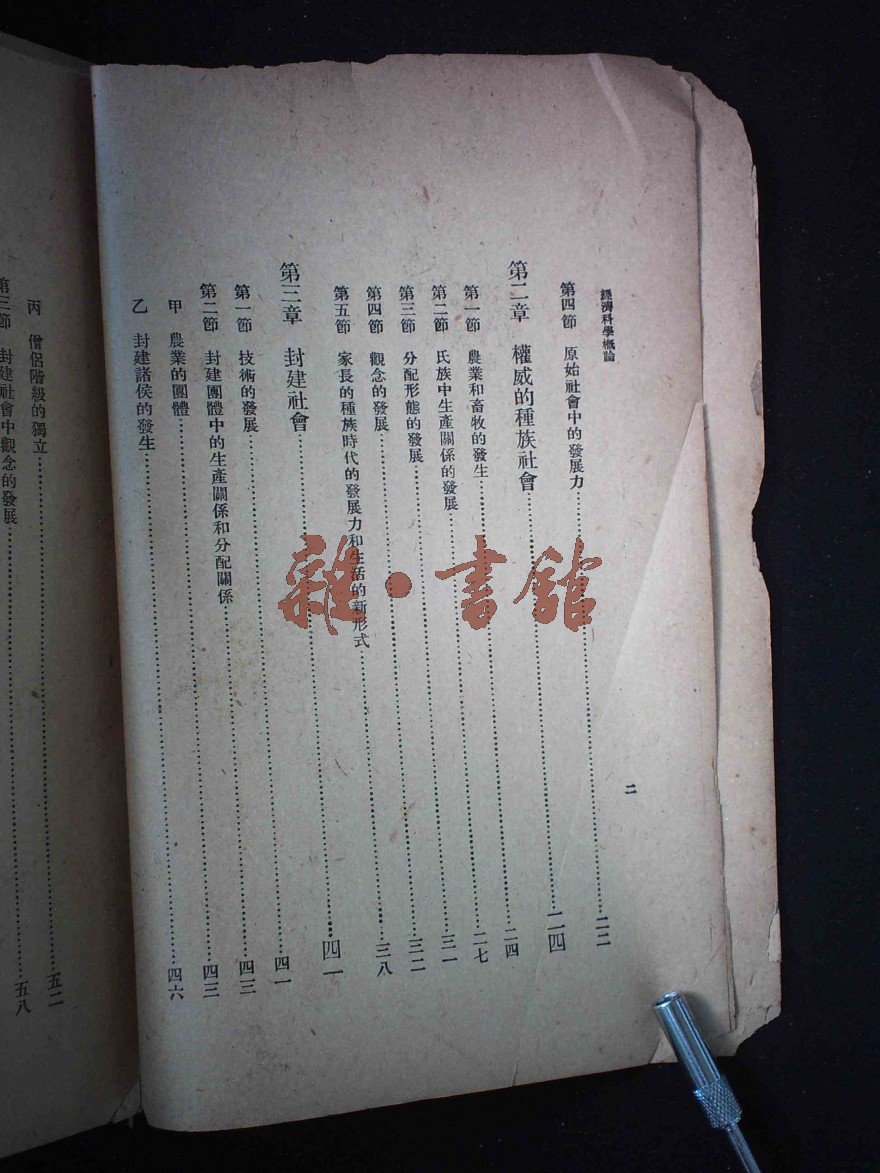 經濟科學概論
二
第四節 原始社會中的發展力……二二
第二章 權威的種族社會……二四
第一節 農業和畜牧的發生……二四
第二節 氏族中生產關係的發展……二七
第三節 分配形態的發展……三一
第四節 觀念的發展……三二
第五節 家長的種族時代的發展力和生活的新形式……三八
第三章 封建社會……四一
第一節 技術的發展……四一
第二節 封建團體中的生產關係和分配關係……四三
甲 農業的團體……四三
乙 封建諸侯的發生……四六
丙 僧侶階級的獨立……五二
第三節 封建社會中觀念的發展……五八
雜·書館